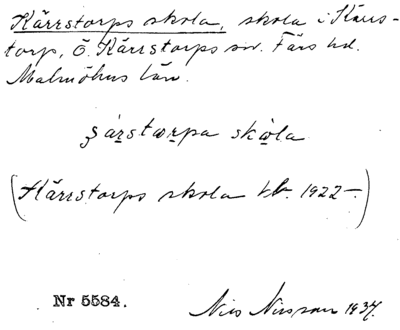 Kärrstorps skola, skola i Kärrs-
torp, Ö. Kärrstorps sn. Färs hd.
Malmöhus län.
skǫla
(Kärrstorps skola kb. 1922–.)
Nr 5584.
Nils Nilsson 1937.